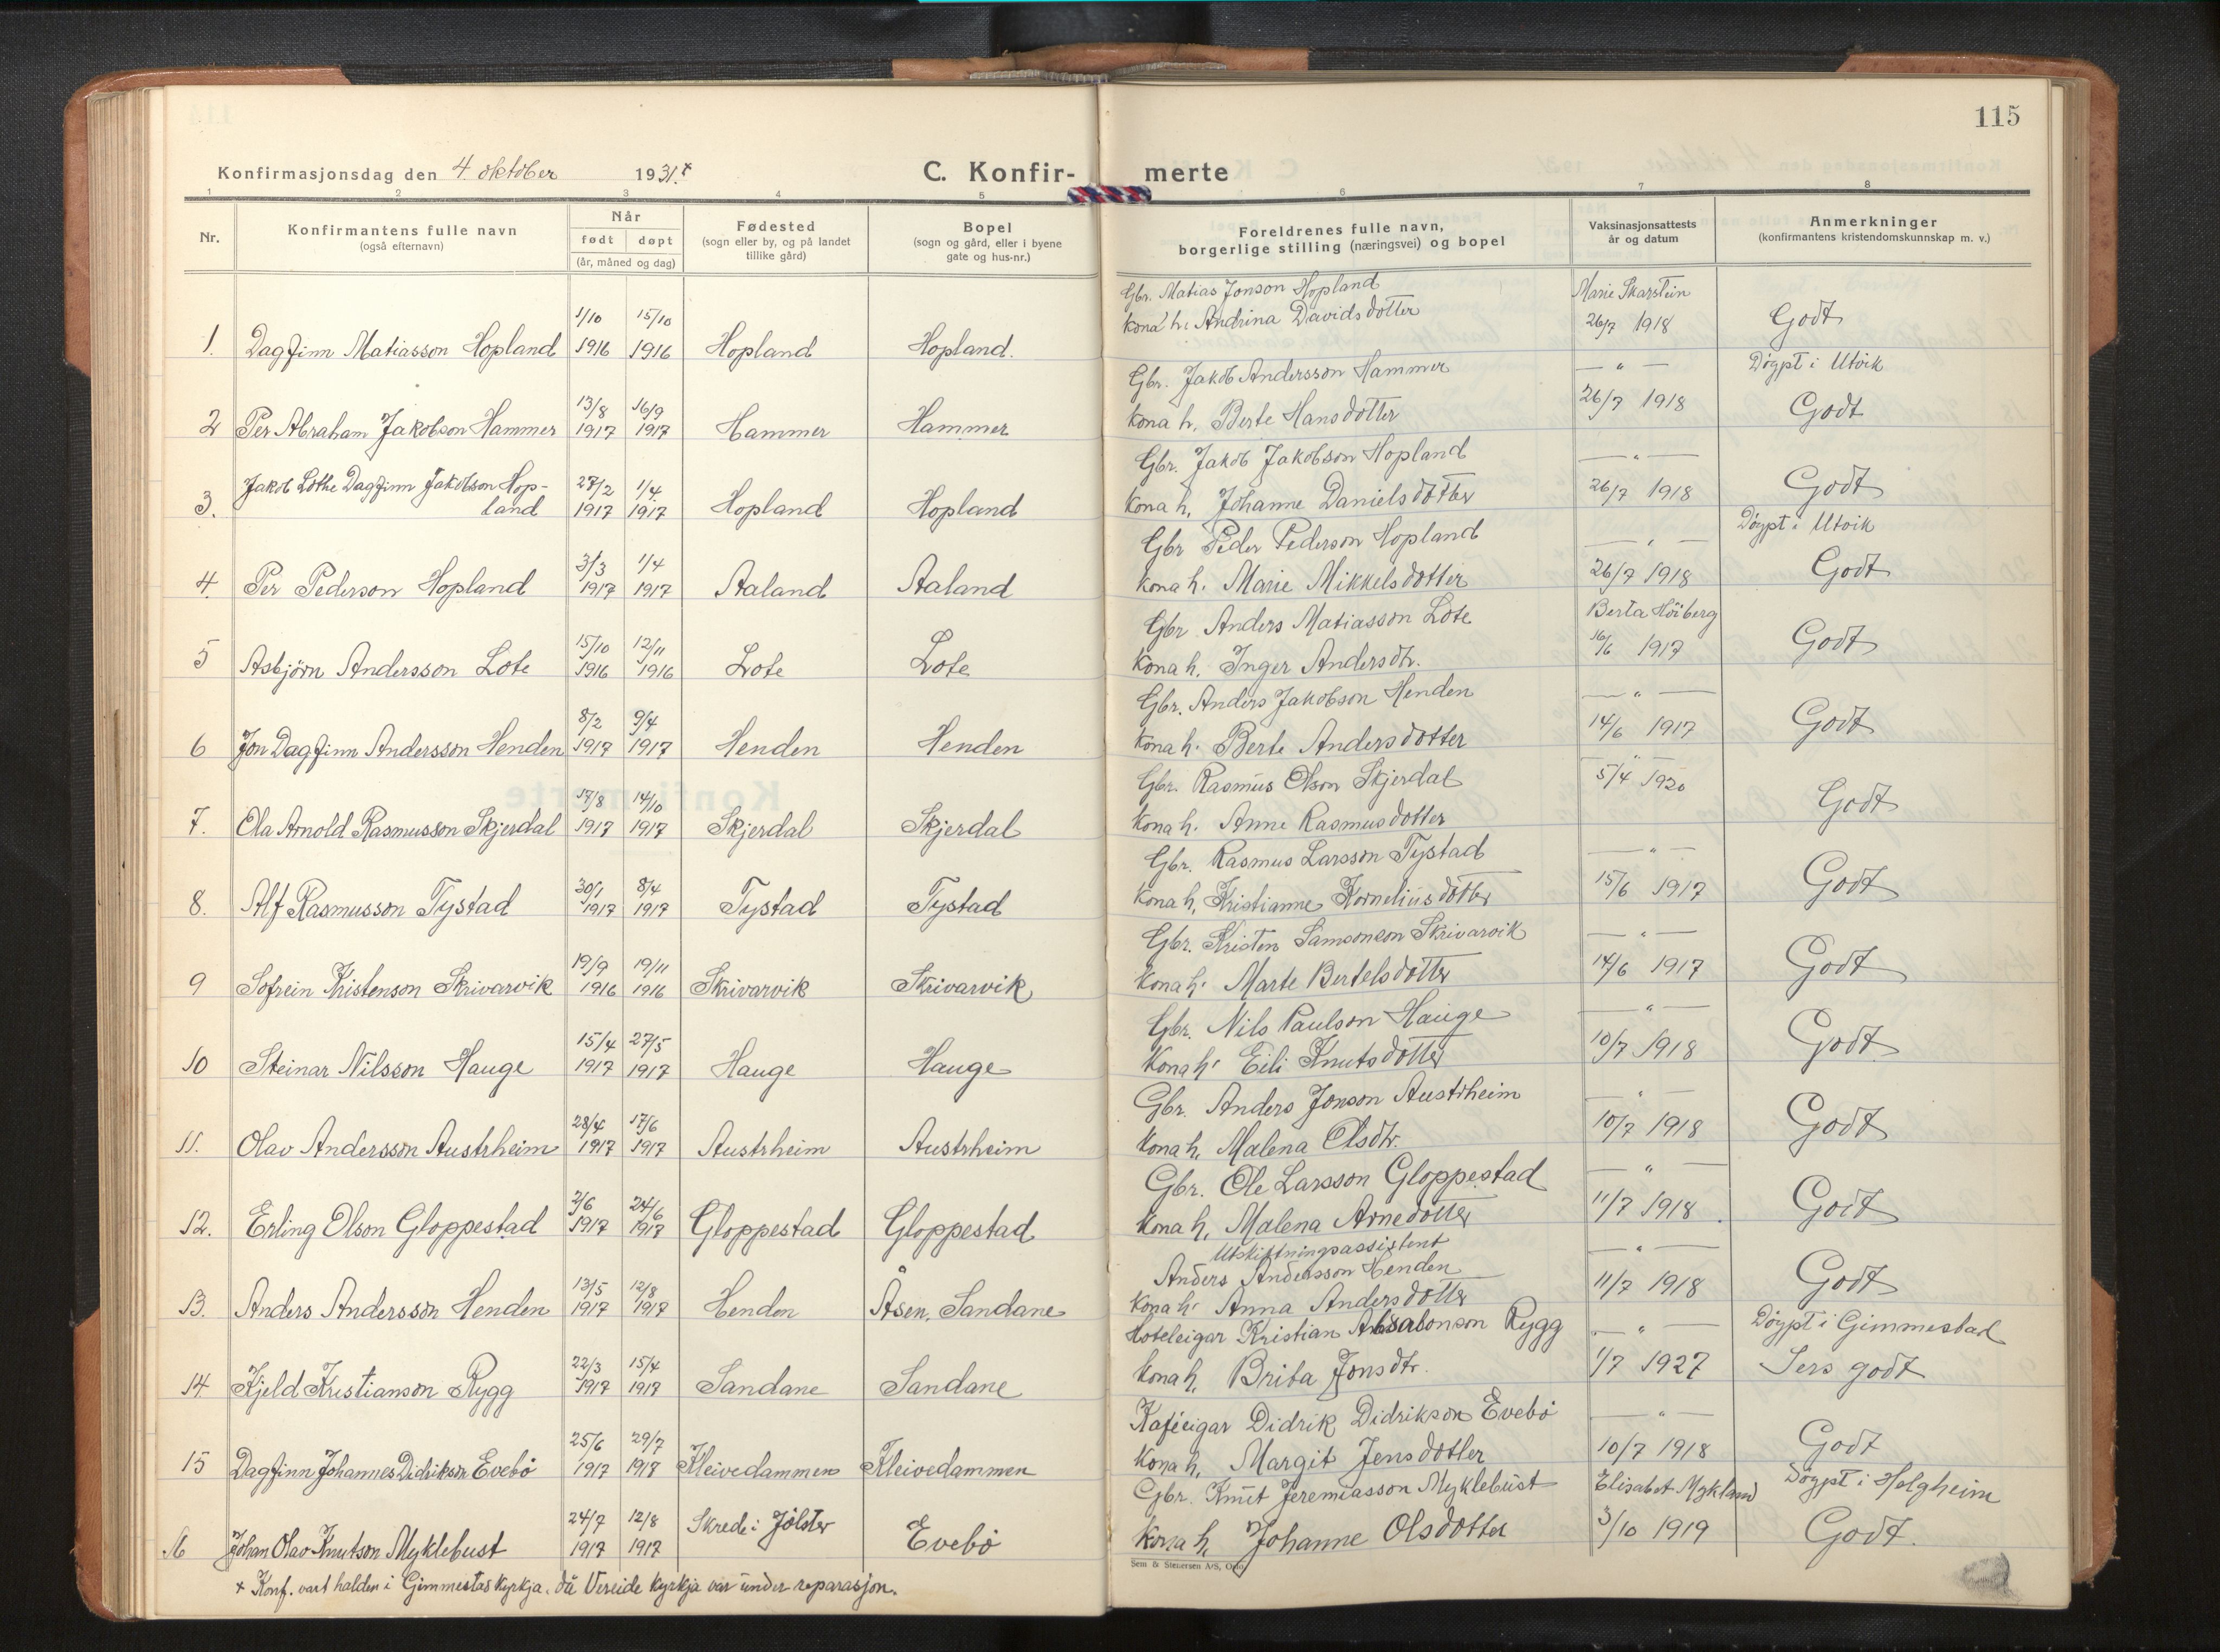 115
Konfirmasjonsdag den 4. oktober 1931.+
C. Konfir- merte
1 2 3 4 5 6 7 8
Nr.
Konfirmantens fulle navn
(også efternavn)
Når
født døpt
(år, måned og dag)
Fødested
(sogn eller by, og på landet
tillike gård)
Bopel
(sogn og gård, eller i byene
gate og hus-nr.)
Foreldrenes fulle navn,
borgerlige stilling (næringsvei) og bopel
Vaksinasjonsattests
år og datum
Anmerkninger
(konfirmantens kristendomskunnskap m. v.)
Gbr. Matias Jonson Hopland Marie Skarstein
1/10 15/10 kona h. Andrina Davidsdotter 26/7 1918 Godt
1. Dagfinn Matiasson Hopland 1916 1916 Hopland Hopland.
Gbr. Jakob Andersson Hammer — " — Döypt i Utvik
13/8 16/9 kona h. Berte Hansdotter 26/7 1918 Godt
2 Per Abraham Jakobson Hammer 1917 1917 Hammer Hammer
Gbr. Jakob Jakobson Hopland — " —
Jakob Lothe Dagfinn Jakobson Hop- 27/2 1/4 kona h. Johanne Danielsdotter 26/7 1918 Godt
3. land 1917 1917 Hopland Hopland
Gbr Peder Pederson Hopland — " — Döypt i Utvik
3/3 1/4 kona h. Marie Mikkelsdotter 26/7 1918 Godt
4. Per Pederson Hopland 1917 1917 Aaland Aaland
Gbr Anders Matiasson Lote Berta Höiberg
15/10 12/11 kona h. Inger Andersdtr. 16/6 1917 Godt
5 Asbjörn Andersson Lote 1916 1916 Lote Lote
Gbr. Anders Jakobson Henden — " —
8/2 9/4 kona h. Berte Andersdotter 14/6 1917 Godt
6 Jon Dagfinn Andersson Henden 1917 1917 Henden Henden
Gbr. Rasmus Olson Skjerdal — " — 5/4 1920
17/8 14/10 kona h. Anne Rasmusdotter Godt
7. Ola Arnold Rasmusson Skjerdal 1917 1917 Skjerdal Skjerdal
Gbr. Rasmus Larsson Tystad — " —
30/1 8/4 kona h. Kristianne Korneliusdotter 15/6 1917 Godt
8. Alf Rasmusson Tystad 1917 1917 Tystad Tystad
Gbr. Kristen Samsonson Skrivarvik — " —
19/9 19/11 kona h. Marte Bertelsdotter 14/6 1917 Godt
9 Sofrein Kristenson Skrivarvik 1916 1916 Skrivarvik Skrivarvik
Gbr. Nils Paulson Hauge — " —
15/4 27/5 kona h. Eili Knutsdotter 10/7 1918 Godt
10 Steinar Nilsson Hauge 1917 1917 Hauge Hauge
Gbr. Anders Jonson Austrheim — " —
28/4 17/6 kona h. Malena Olsdtr. 10/7 1918 Godt
11. Olav Andersson Austrheim 1917 1917 Austrheim Austrheim
Gbr. Ole Larsson Gloppestad — " —
2/6 24/6 kona h. Malena Arnedotter 11/7 1918 Godt
12. Erling Olson Gloppestad 1917 1917 Gloppestad Gloppestad
Utskiftningsassistent
Anders Andersson Henden — " —
13/5 12/8 kona h. Anna Andersdotter 11/7 1918 Godt
13. Anders Andersson Henden 1917 1917 Henden Åsen, Sandane
Hoteleigar Kristian Absalonson Rygg — " — Döypt i Gimmestad
22/3 15/4 kona h. Brita Jonsdtr. 1/7 1927 Sers godt
14 Kjeld Kristianson Rygg 1917 1917 Sandane Sandane
Kaféeigar Didrik Didrikson Evebö — " —
25/6 29/7 kona h. Margit Jensdotter 10/7 1918 Godt
15 Dagfinn Johannes Didrikson Evebö 1917 1917 Kleivedammen Kleivedammen
Gbr. Knut Jeremiasson Myklebust Elisabet Mykland Döypt i Helgheim
24/7 12/8 Skrede i Jölster kona h. Johanne Olsdotter 3/10 1919 Godt.
16 Johan Olav Knutson Myklebust 1917 1917 Evebö
Sem & Stenersen A/S, Oslo
+ Konf. vart halden i Gimmestad kyrkja, då Vereide kyrkja var under reparasjon.